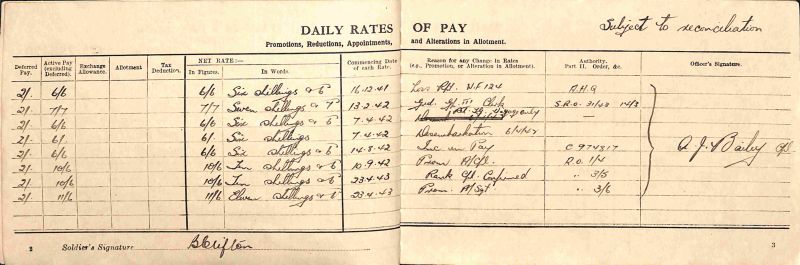 DAILY RATES OF PAY
Subject to reconciliation
Promotions, Reductions, Appointments, and Alterations in Allotment.
Deferred Pay. Active Pay (excluding Deferred). Exchange Allowance. Allotment Tax Deduction. NET RATE:— In Figures. In Words. Commencing Date of each Rate. Reason for any Change in Rates (e.g., Promotion, or Alteration in Allotment). Authority. Part II, Order, &c. Officer's Signature.
2/- 6/6 6/6 Six shillings & 6 16.12.41 A.H.Q
2/- 7/7 7/7 Seven shillings & 7 13.2.42 Gd. III Clerk S.R.O. 31/42 14/3
2/- 6/6 6/6 Six shillings & 6 7.4.42 —
2/- 6/- 6/- Six shillings 7.4.42 Disembarkation 6/4/42
2/- 6/6 6/6 Six shillings & 6 14.8.42 Inc in Pay C974817 A. J. Bailey
2/- 10/6 10/6 Ten shillings & 6 10.9.42 Prom A/Cpl. R.O. 1/4
2/- 10/6 10/6 Ten shillings & 6 23.4.43 Rank Cpl. Confirmed " 3/5
2/- 11/6 11/6 Eleven shillings & 6 23.4.43 Prom. A/Sgt " 3/6
2 Soldier's Signature B Clifton 3